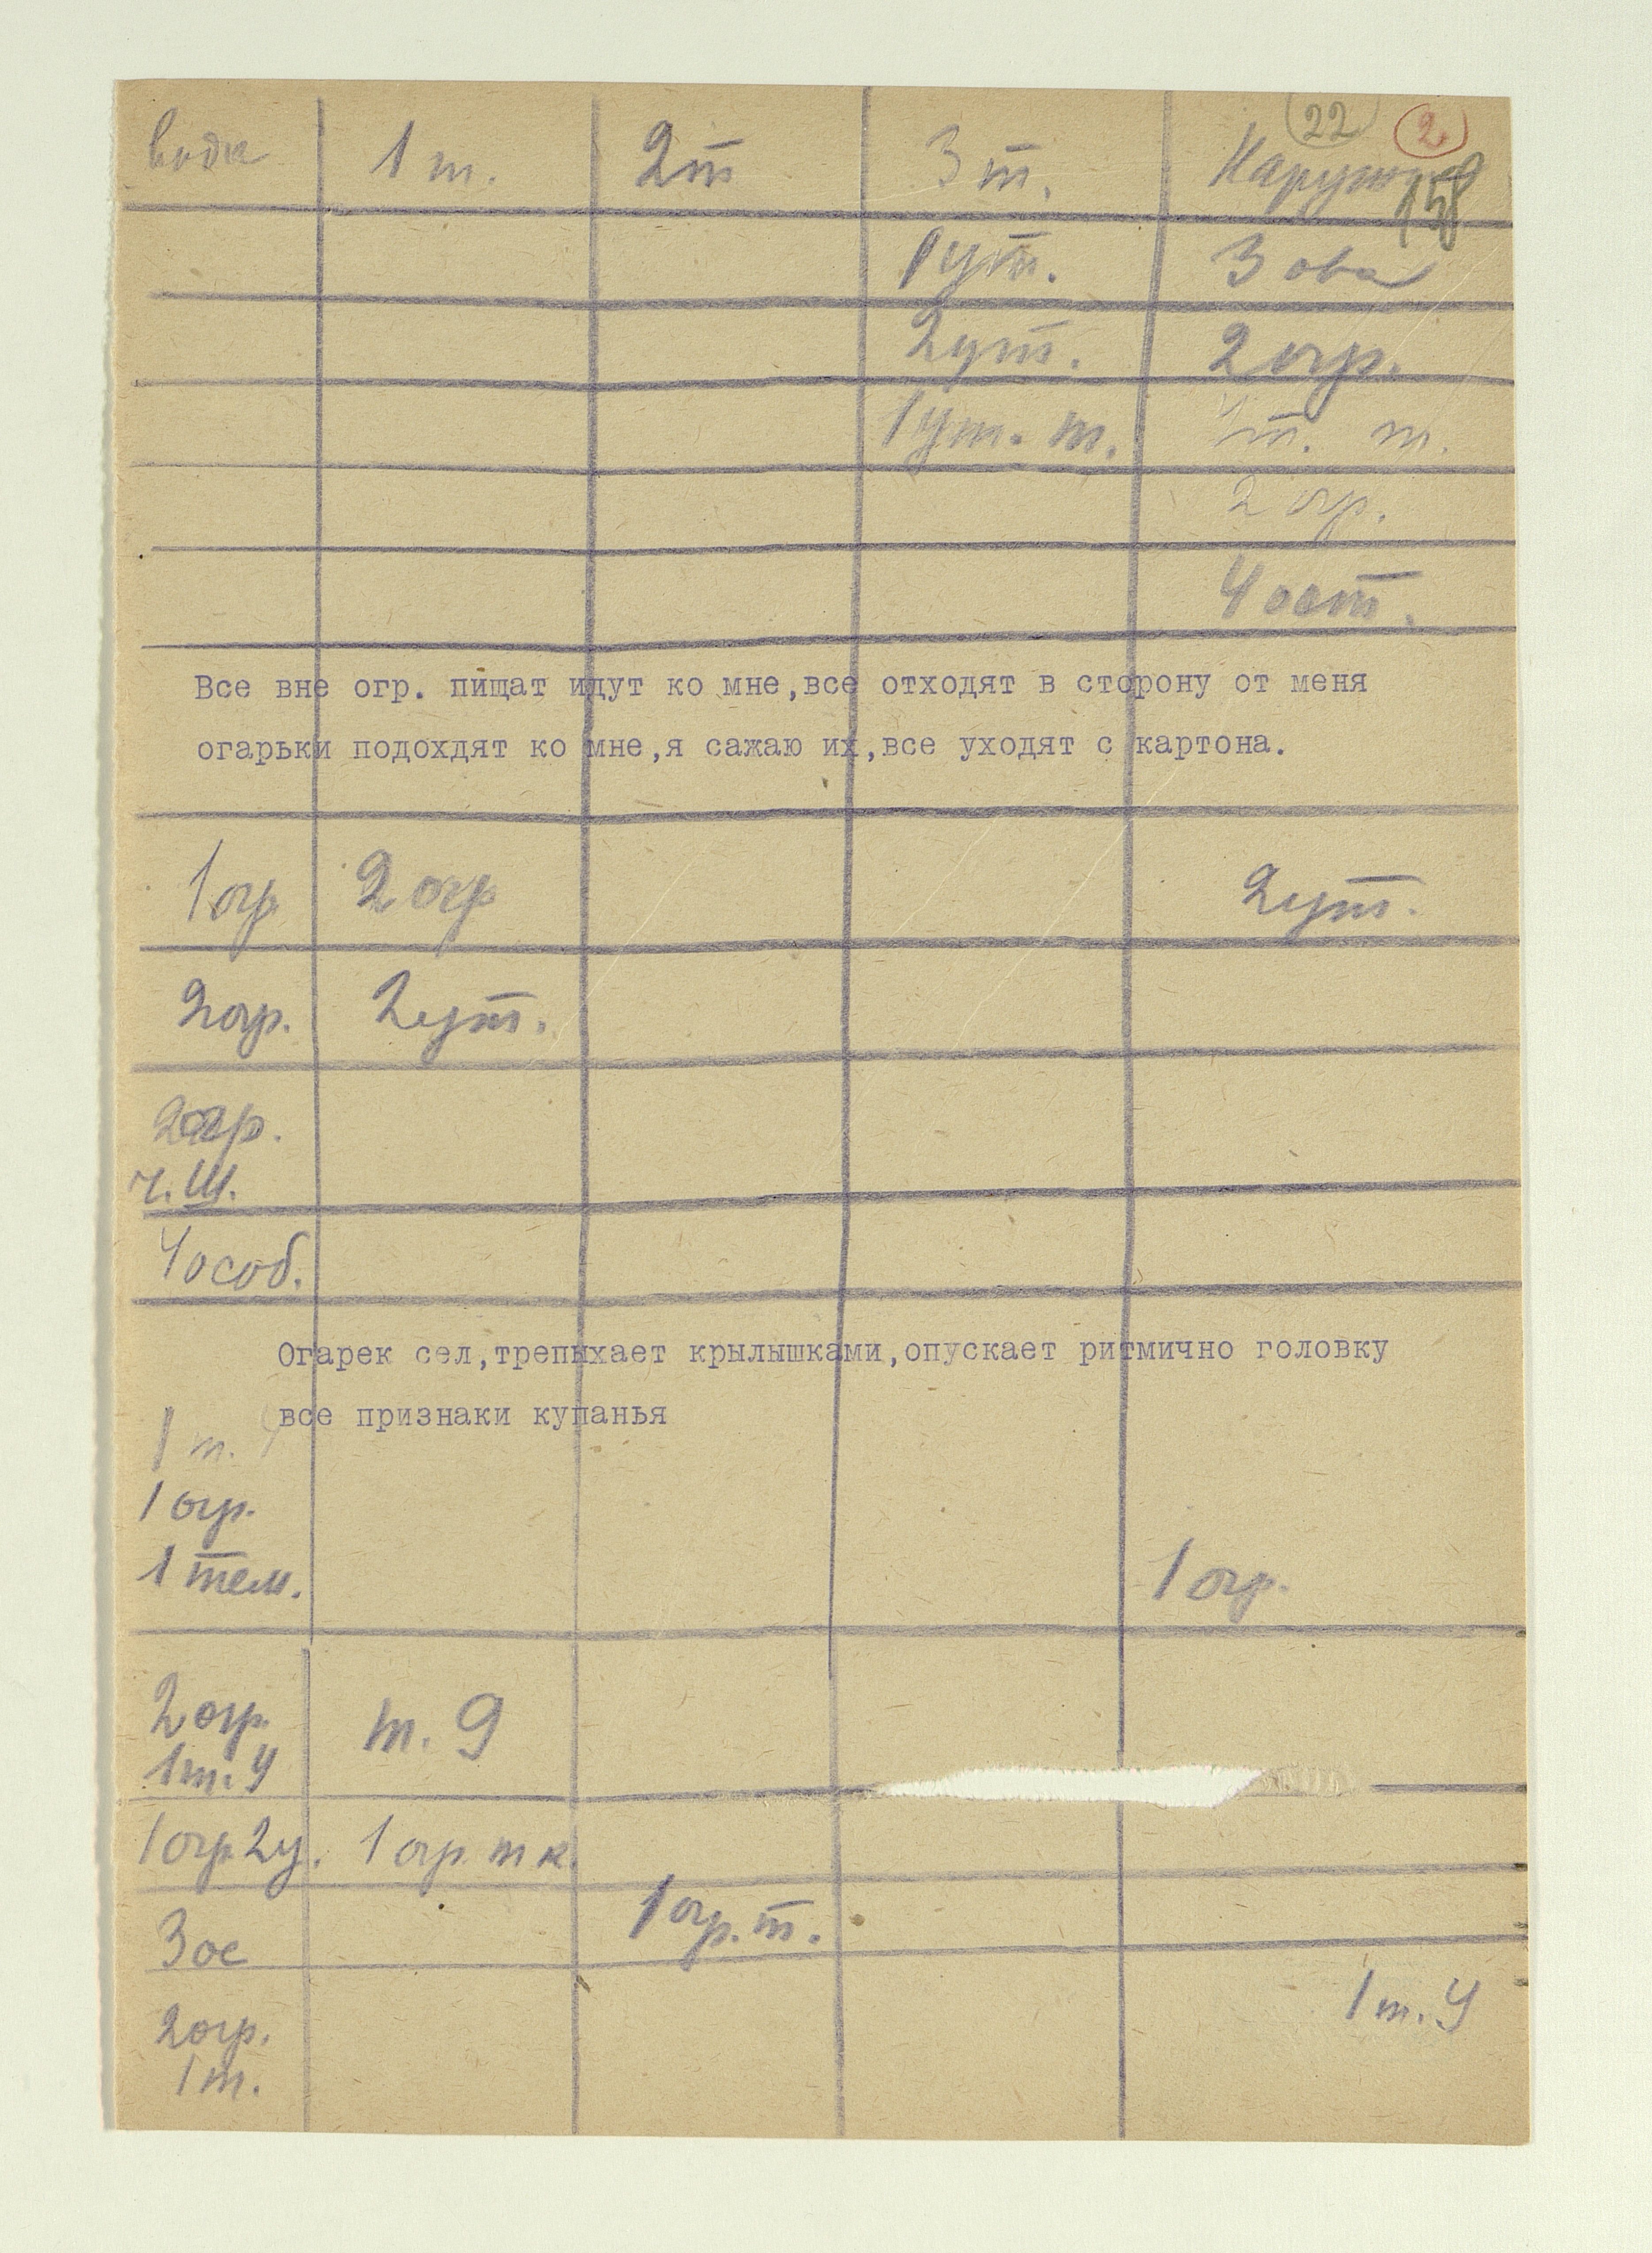 22 2
вода 1 т. 2т 3 т. Наруж
158
1 ут. 3 ова
2 ут. 2 огр.
1 ут. т. т. т.
2 огр.
4 ост.
Все вне огр. пищат идут ко мне,все отходят в сторону от меня
огарьки подохдят ко мне,я сажаю их,все уходят с картона.
1 огр 2 огр 2 ут.
2 огр. 2 ут.
2 огр.
ч. Ш.
4 особ.
Огарек сел,трепыхает крылышками,опускает ритмично головку
все признаки купанья
1 т.
1 огр.
1 тем. 1 огр.
2 огр. т. 9
1 т. у
1 огр. 2 у. 1 огр. т к.
1 огр. т.
3 ос
1 т. у
2 огр.
1 т.